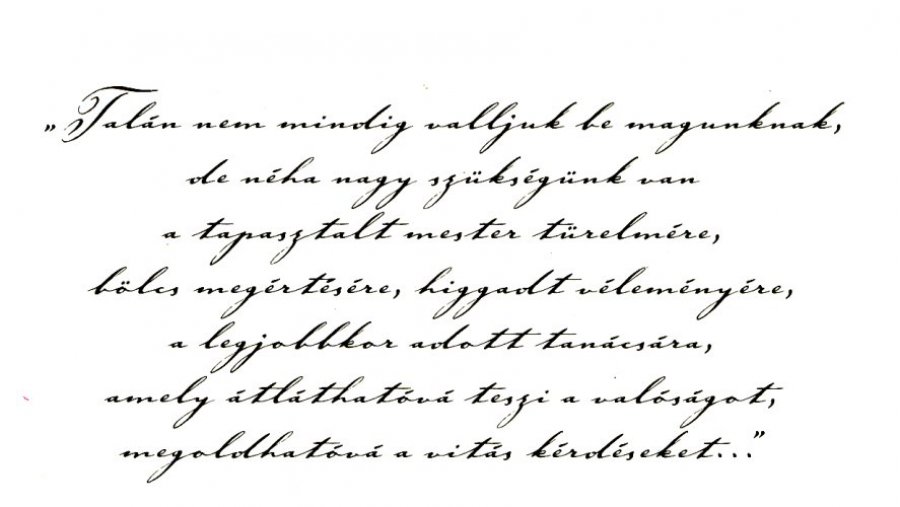 „Talán nem mindig valljuk be magunknak,
de néha nagy szükségünk van
a tapasztalt mester türelmére,
bölcs megértésére, higgadt véleményére,
a legjobbkor adott tanácsára,
amely átláthatóvá teszi a valóságot,
megoldhatóvá a vitás kérdéseket...”